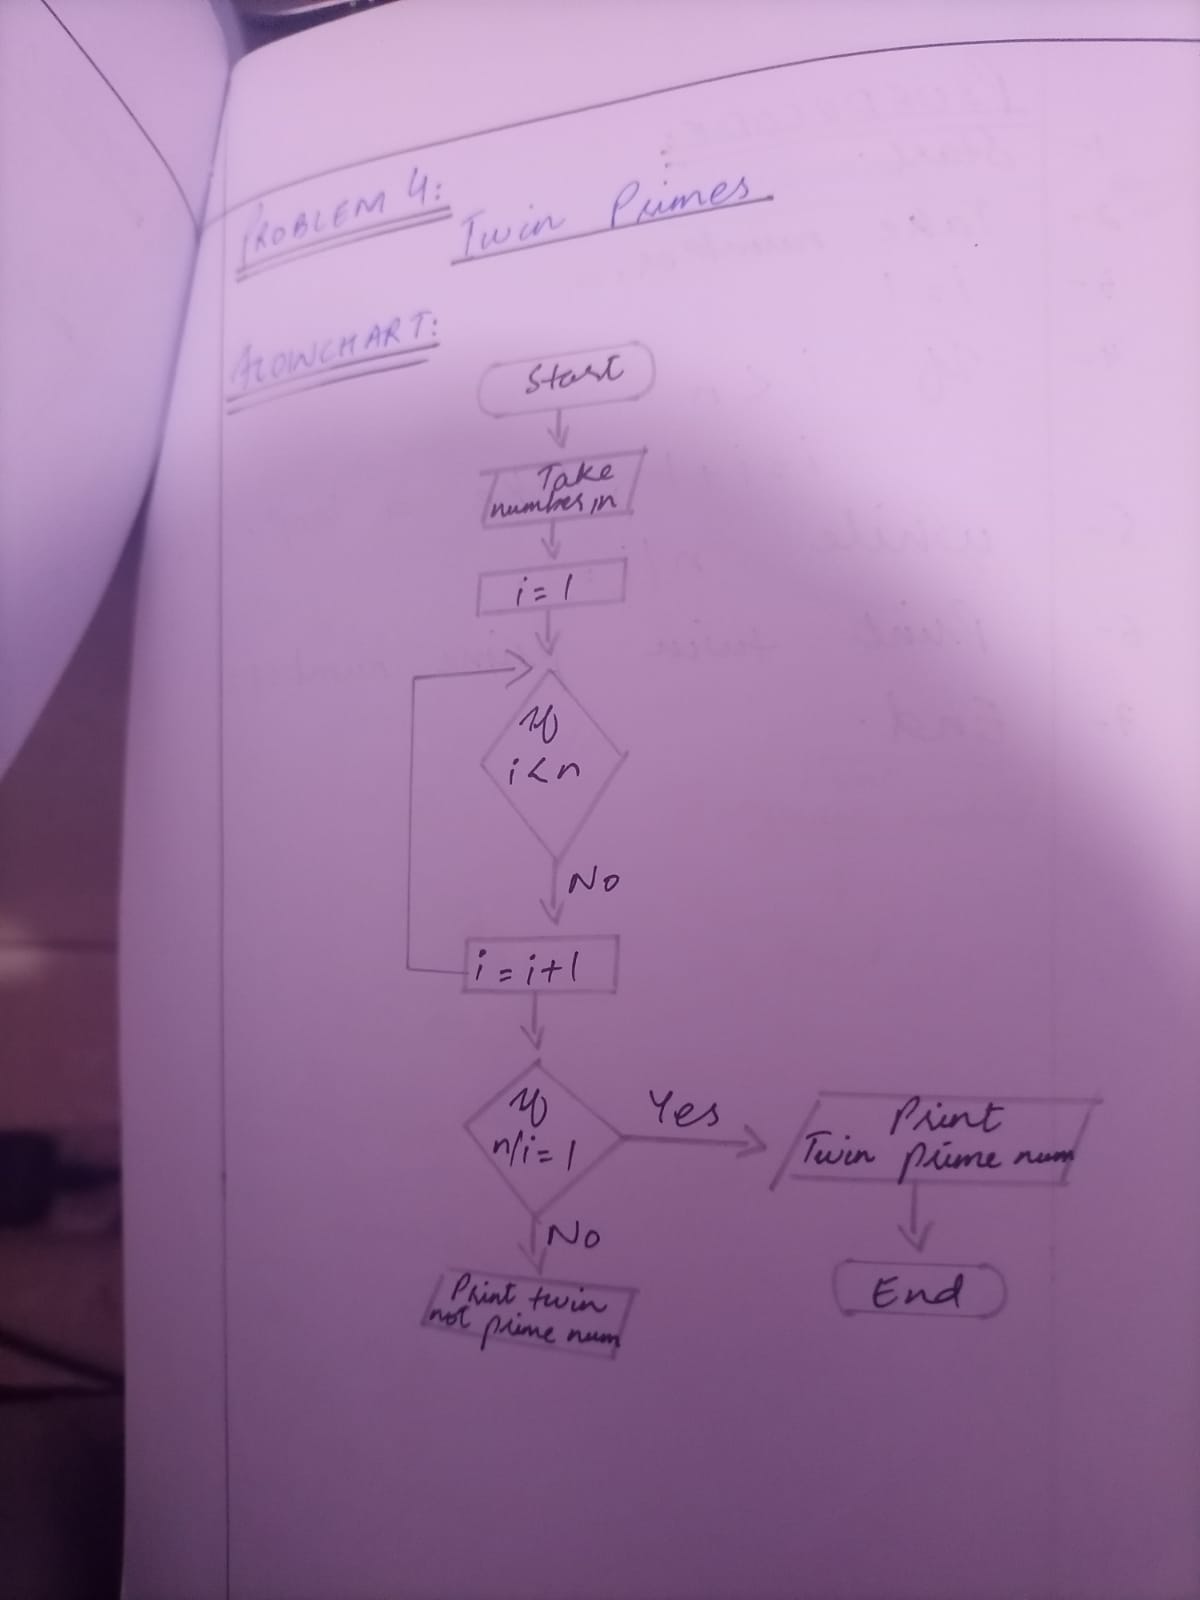 PROBLEM 4:
Twin Primes
FLOWCHART:
Start
Take
number, n
i = 1
If
i < n
No
i = i + 1
If
n/i = 1
Yes
Print
Twin prime num
No
End
Print twin
not prime num